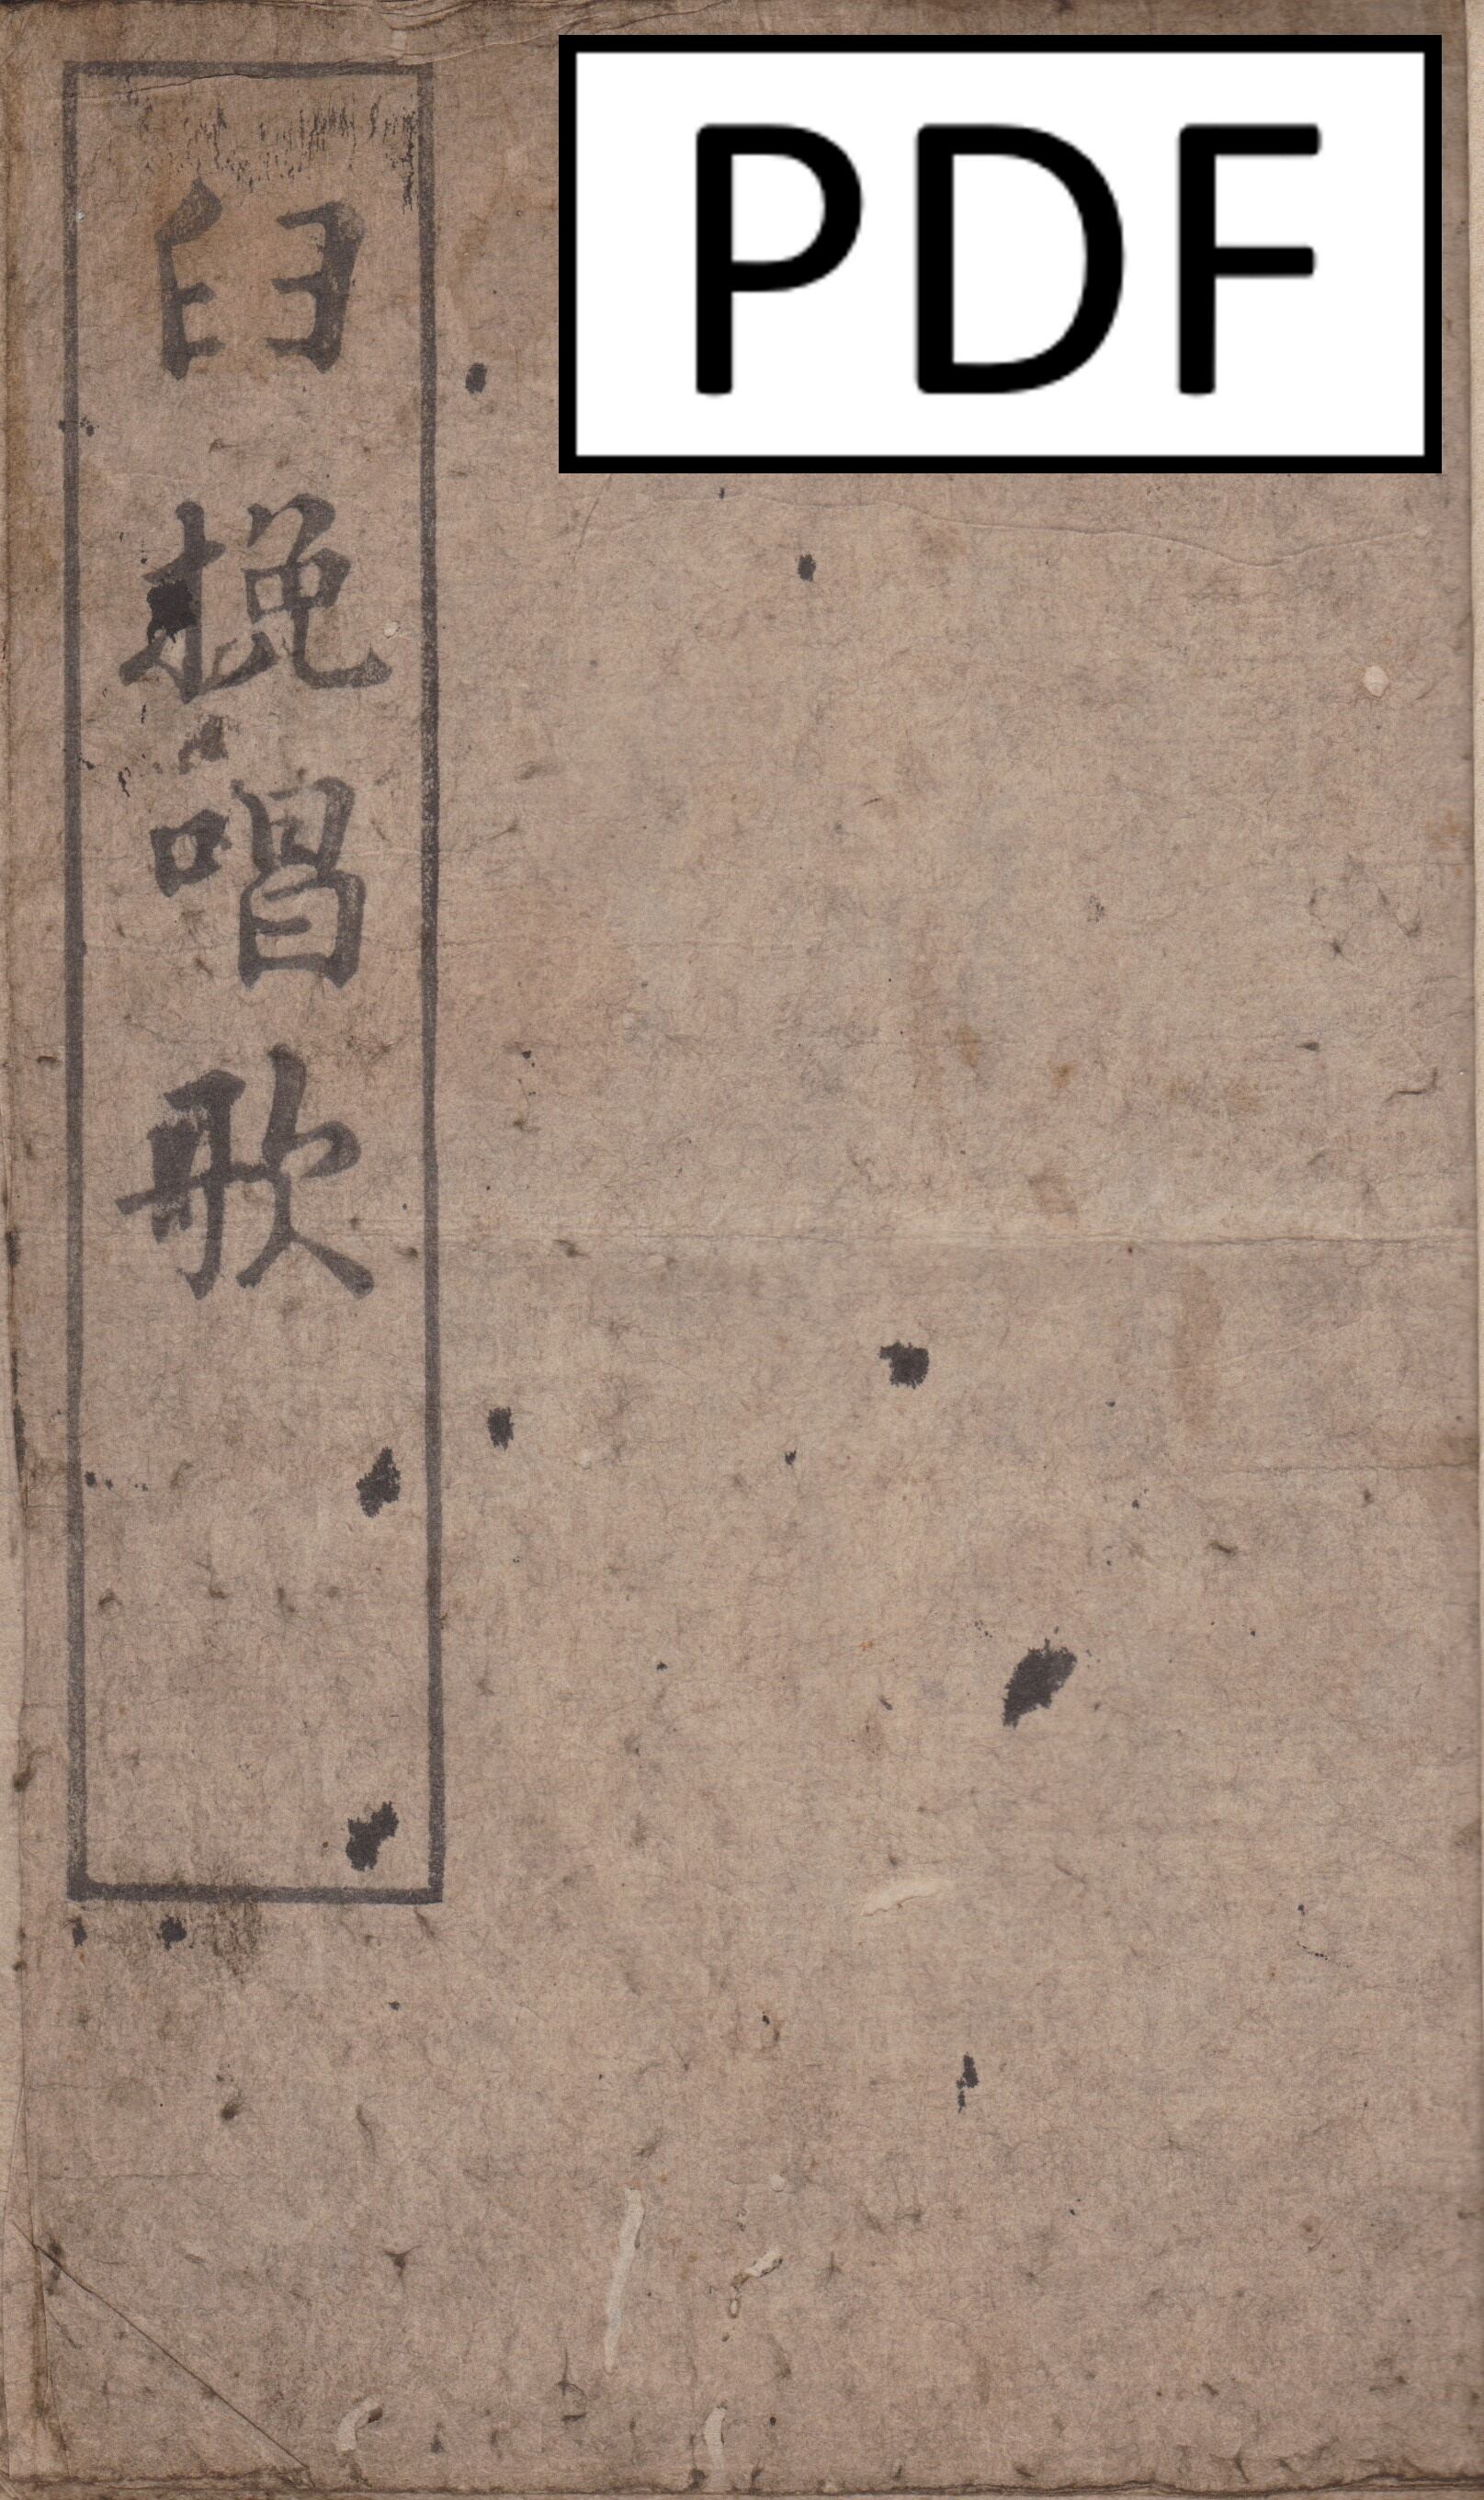 PDF
臼挽唱歌